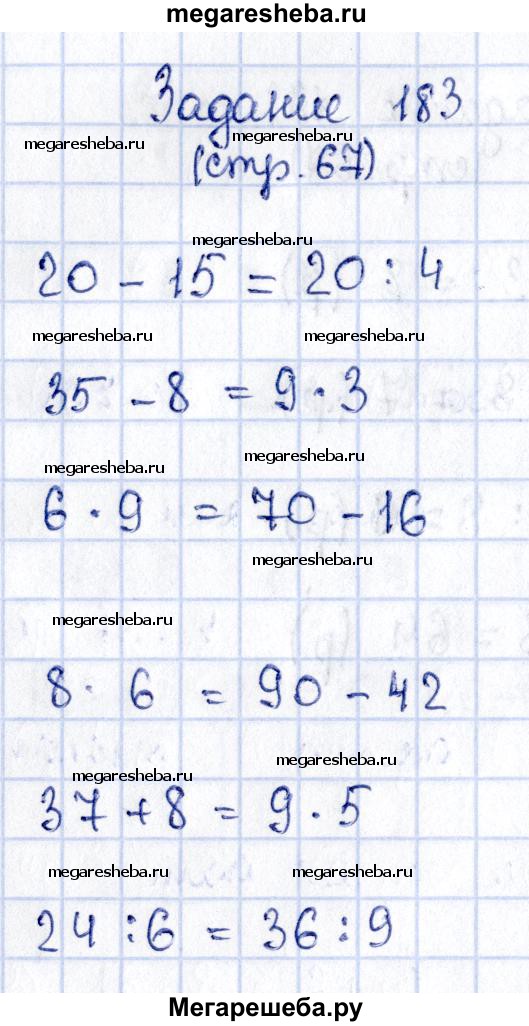 megaresheba.ru
Задание 183
megaresheba.ru
megaresheba.ru
(стр. 67)
megaresheba.ru
20 - 15 = 20 : 4
megaresheba.ru megaresheba.ru
35 - 8 = 9 · 3
megaresheba.ru megaresheba.ru
6 · 9 = 70 - 16
megaresheba.ru
megaresheba.ru
8 · 6 = 90 - 42
megaresheba.ru
megaresheba.ru
37 + 8 = 9 · 5
megaresheba.ru megaresheba.ru
24 : 6 = 36 : 9
Мегарешеба.ру